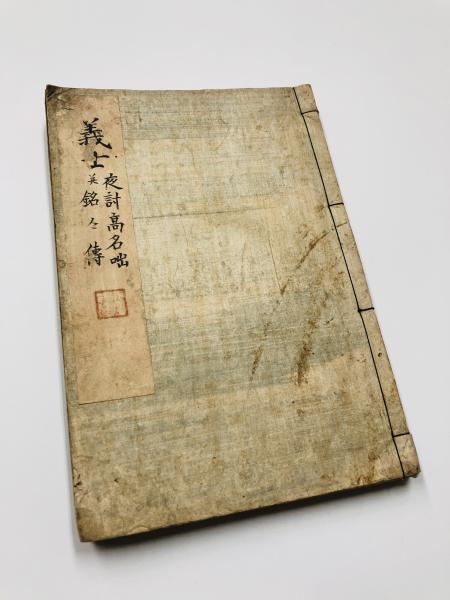 義士
夜討高名咄
英銘々傳